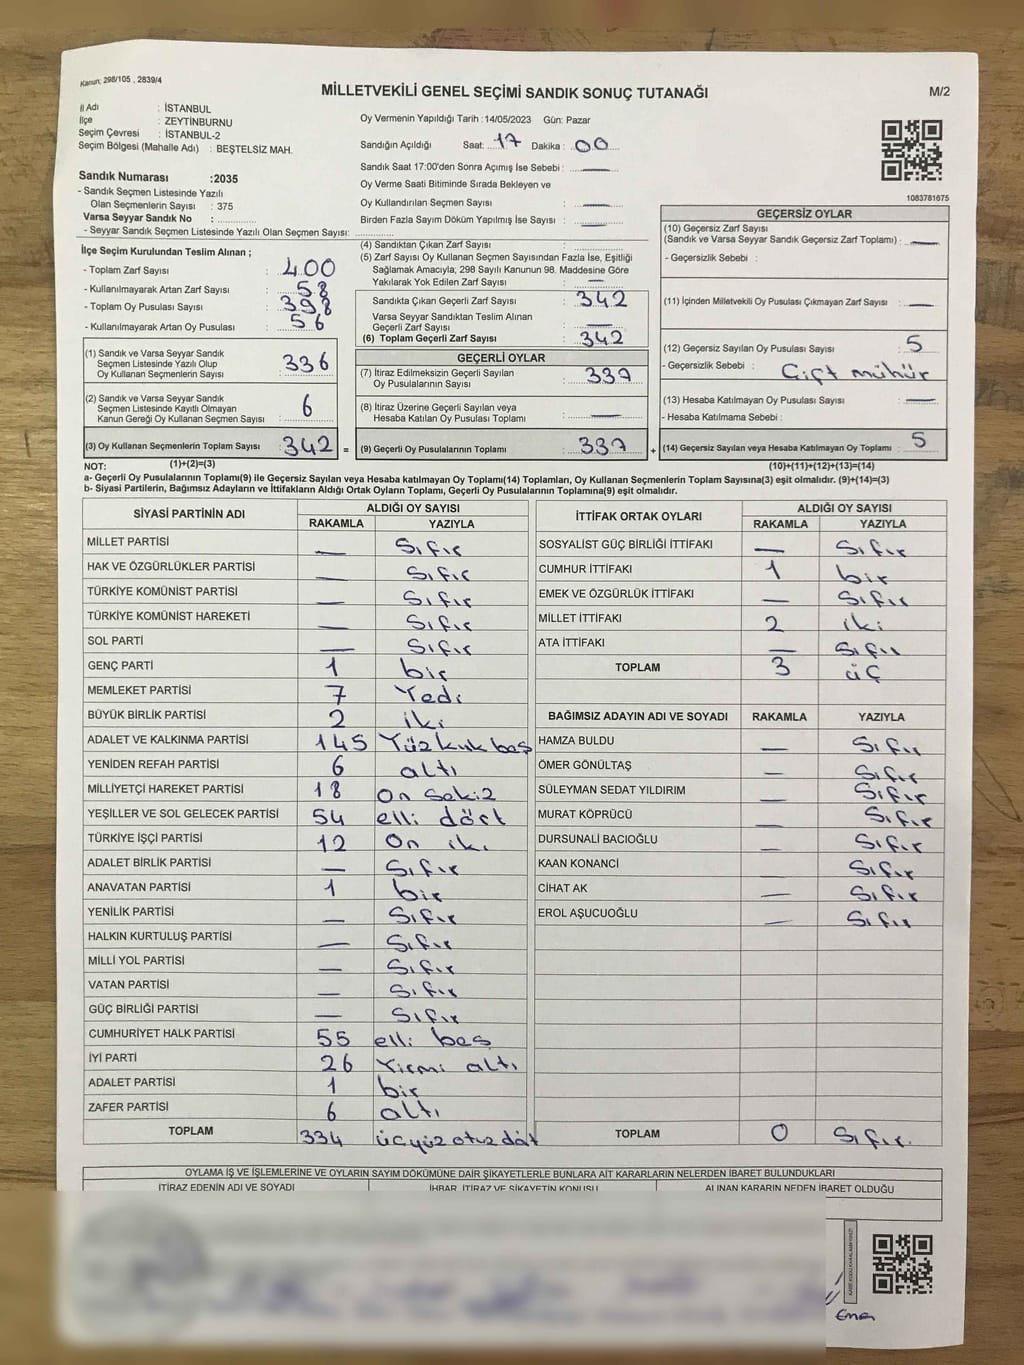 Kanun: 298/105 , 2839/4
MİLLETVEKİLİ GENEL SEÇİMİ SANDIK SONUÇ TUTANAĞI
M/2
İl Adı : İSTANBUL
İlçe : ZEYTİNBURNU
Seçim Çevresi : İSTANBUL-2
Seçim Bölgesi (Mahalle Adı) : BEŞTELSİZ MAH.
Sandık Numarası :2035
- Sandık Seçmen Listesinde Yazılı
Olan Seçmenlerin Sayısı : 375
Varsa Seyyar Sandık No :
- Seyyar Sandık Seçmen Listesinde Yazılı Olan Seçmen Sayısı:
Oy Vermenin Yapıldığı Tarih :14/05/2023 Gün: Pazar
Sandığın Açıldığı Saat: 17 Dakika : 00
Sandık Saat 17:00'den Sonra Açımış İse Sebebi : —
Oy Verme Saati Bitiminde Sırada Bekleyen ve
Oy Kullandırılan Seçmen Sayısı : —
Birden Fazla Sayım Döküm Yapılmış İse Sayısı : —
1083781675
İlçe Seçim Kurulundan Teslim Alınan ;
- Toplam Zarf Sayısı : 400
- Kullanılmayarak Artan Zarf Sayısı : 58
- Toplam Oy Pusulası Sayısı : 398
- Kullanılmayarak Artan Oy Pusulası : 56
(1) Sandık ve Varsa Seyyar Sandık
Seçmen Listesinde Yazılı Olup
Oy Kullanan Seçmenlerin Sayısı : 336
(2) Sandık ve Varsa Seyyar Sandık
Seçmen Listesinde Kayıtlı Olmayan
Kanun Gereği Oy Kullanan Seçmen Sayısı : 6
(3) Oy Kullanan Seçmenlerin Toplam Sayısı : 342 =
(4) Sandıktan Çıkan Zarf Sayısı :
(5) Zarf Sayısı Oy Kullanan Seçmen Sayısından Fazla İse, Eşitliği
Sağlamak Amacıyla; 298 Sayılı Kanunun 98. Maddesine Göre
Yakılarak Yok Edilen Zarf Sayısı : —
Sandıkta Çıkan Geçerli Zarf Sayısı : 342
Varsa Seyyar Sandıktan Teslim Alınan
Geçerli Zarf Sayısı : —
(6) Toplam Geçerli Zarf Sayısı : 342
GEÇERLİ OYLAR
(7) İtiraz Edilmeksizin Geçerli Sayılan
Oy Pusulalarının Sayısı : 337
(8) İtiraz Üzerine Geçerli Sayılan veya
Hesaba Katılan Oy Pusulaları Toplamı : —
(9) Geçerli Oy Pusulalarının Toplamı : 337 +
GEÇERSİZ OYLAR
(10) Geçersiz Zarf Sayısı
(Sandık ve Varsa Seyyar Sandık Geçersiz Zarf Toplamı) : —
- Geçersizlik Sebebi :
(11) İçinden Milletvekili Oy Pusulası Çıkmayan Zarf Sayısı : —
(12) Geçersiz Sayılan Oy Pusulası Sayısı : 5
- Geçersizlik Sebebi : Çift mühür
(13) Hesaba Katılmayan Oy Pusulası Sayısı : —
- Hesaba Katılmama Sebebi :
(14) Geçersiz Sayılan veya Hesaba Katılmayan Oy Toplamı : 5
NOT: (1)+(2)=(3) (10)+(11)+(12)+(13)=(14)
a- Geçerli Oy Pusulalarının Toplamı(9) ile Geçersiz Sayılan veya Hesaba katılmayan Oy Toplamı(14) Toplamları, Oy Kullanan Seçmenlerin Toplam Sayısına(3) eşit olmalıdır. (9)+(14)=(3)
b- Siyasi Partilerin, Bağımsız Adayların ve İttifakların Aldığı Ortak Oyların Toplamı, Geçerli Oy Pusulalarının Toplamına(9) eşit olmalıdır.
SİYASİ PARTİNİN ADI ALDIĞI OY SAYISI
RAKAMLA YAZIYLA
MİLLET PARTİSİ — Sıfır
HAK VE ÖZGÜRLÜKLER PARTİSİ — Sıfır
TÜRKİYE KOMÜNİST PARTİSİ — Sıfır
TÜRKİYE KOMÜNİST HAREKETİ — Sıfır
SOL PARTİ — Sıfır
GENÇ PARTİ 1 bir
MEMLEKET PARTİSİ 7 Yedi
BÜYÜK BİRLİK PARTİSİ 2 iki
ADALET VE KALKINMA PARTİSİ 145 Yüz kırk beş
YENİDEN REFAH PARTİSİ 6 altı
MİLLİYETÇİ HAREKET PARTİSİ 18 On sekiz
YEŞİLLER VE SOL GELECEK PARTİSİ 54 elli dört
TÜRKİYE İŞÇİ PARTİSİ 12 On iki
ADALET BİRLİK PARTİSİ — Sıfır
ANAVATAN PARTİSİ 1 bir
YENİLİK PARTİSİ — Sıfır
HALKIN KURTULUŞ PARTİSİ — Sıfır
MİLLİ YOL PARTİSİ — Sıfır
VATAN PARTİSİ — Sıfır
GÜÇ BİRLİĞİ PARTİSİ — Sıfır
CUMHURİYET HALK PARTİSİ 55 elli beş
İYİ PARTİ 26 Yirmi altı
ADALET PARTİSİ 1 bir
ZAFER PARTİSİ 6 altı
TOPLAM 334 üçyüz otuz dört
İTTİFAK ORTAK OYLARI ALDIĞI OY SAYISI
RAKAMLA YAZIYLA
SOSYALİST GÜÇ BİRLİĞİ İTTİFAKI — Sıfır
CUMHUR İTTİFAKI 1 bir
EMEK VE ÖZGÜRLÜK İTTİFAKI — Sıfır
MİLLET İTTİFAKI 2 iki
ATA İTTİFAKI — Sıfır
TOPLAM 3 üç
BAĞIMSIZ ADAYIN ADI VE SOYADI RAKAMLA YAZIYLA
HAMZA BULDU — Sıfır
ÖMER GÖNÜLTAŞ — Sıfır
SÜLEYMAN SEDAT YILDIRIM — Sıfır
MURAT KÖPRÜCÜ — Sıfır
DURSUNALİ BACIOĞLU — Sıfır
KAAN KONANCİ — Sıfır
CİHAT AK — Sıfır
EROL AŞUCUOĞLU — Sıfır
TOPLAM 0 Sıfır
OYLAMA İŞ VE İŞLEMLERİNE VE OYLARIN SAYIM DÖKÜMÜNE DAİR ŞİKAYETLERLE BUNLARA AİT KARARLARIN NELERDEN İBARET BULUNDUKLARI
İTİRAZ EDENİN ADI VE SOYADI İHBAR, İTİRAZ VE ŞİKAYETİN KONUSU ALINAN KARARIN NEDEN İBARET OLDUĞU